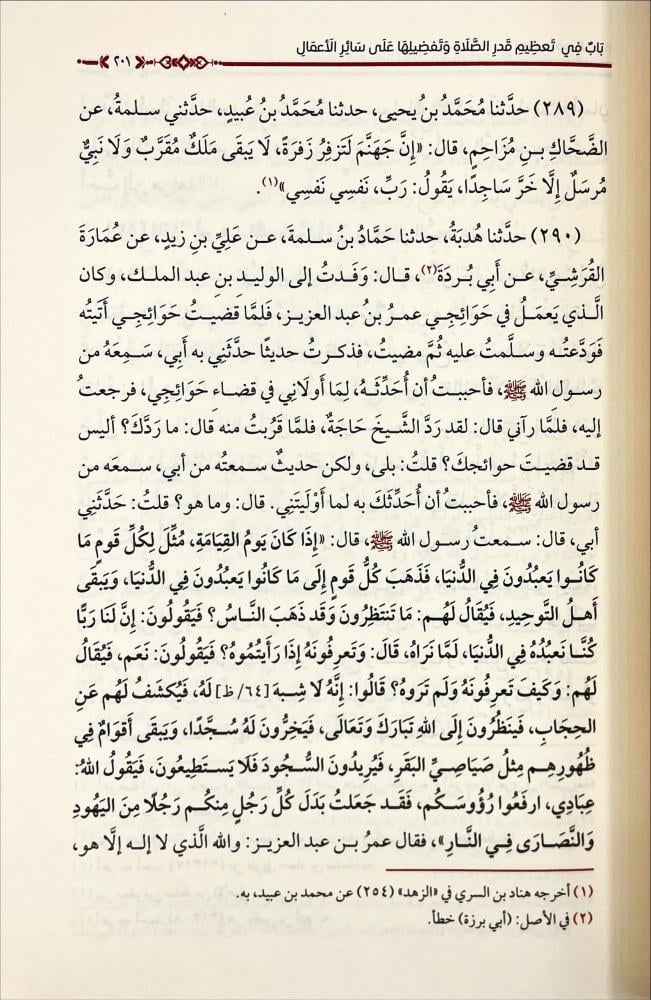 بَابٌ فِي تَعظِيمِ قَدرِ الصَّلَاةِ وَتَفضِيلِهَا عَلَى سَائِرِ الأَعمَالِ
٢٠١
(٢٨٩) حدَّثنا مُحَمَّدُ بنُ يحيى، حدثنا مُحَمَّدُ بنُ عُبيدٍ، حدَّثني سلمةُ، عن
الضَّحَّاكِ بنِ مُزَاحِمٍ، قال: «إِنَّ جَهَنَّمَ لَتَزفِرُ زَفرَةً، لَا يَبقَى مَلَكٌ مُقَرَّبٌ وَلَا نَبِيٌّ
مُرسَلٌ إِلَّا خَرَّ سَاجِدًا، يَقُولُ: رَبِّ، نَفسِي نَفسِي»(١).
(٢٩٠) حدَّثنا هُدبَةُ، حدثنا حَمَّادُ بنُ سلمةَ، عن عَلِيِّ بنِ زيدٍ، عن عُمَارَةَ
القُرَشِيِّ، عن أَبِي بُردَةَ(٢)، قال: وَفَدتُ إلى الوليدِ بنِ عبد الملك، وكان
الَّذي يَعمَلُ في حَوَائِجِي عمرُ بنُ عبد العزيز، فلمَّا قضيتُ حَوَائِجِي أَتَيتُه
فَوَدَّعتُه وسلَّمتُ عليه ثُمَّ مضيتُ، فذكرتُ حديثًا حدَّثَنِي به أَبِي، سَمِعَهُ من
رسول الله ﷺ، فأحببتُ أن أُحَدِّثَهُ، لِمَا أَولَانِي في قضاءِ حَوَائِجِي، فرجعتُ
إليه، فلمَّا رآني قال: لقد رَدَّ الشَّيخَ حَاجَةٌ، فلمَّا قَرُبتُ منه قال: ما رَدَّكَ؟ أليس
قد قضيتَ حوائجكَ؟ قلتُ: بلى، ولكن حديثٌ سمعتُه من أبي، سمعَه من
رسول الله ﷺ، فأحببتُ أن أُحَدِّثَكَ به لما أَوْلَيتَنِي. قال: وما هو؟ قلتُ: حَدَّثَنِي
أبي، قال: سمعتُ رسول الله ﷺ، قال: «إِذَا كَانَ يَومُ القِيَامَةِ، مُثِّلَ لِكُلِّ قَومٍ مَا
كَانُوا يَعبُدُونَ فِي الدُّنيَا، فَذَهَبَ كُلُّ قَومٍ إِلَى مَا كَانُوا يَعبُدُونَ فِي الدُّنيَا، وَيَبقَى
أَهلُ التَّوحِيدِ، فَيُقَالُ لَهُم: مَا تَنتَظِرُونَ وَقَد ذَهَبَ النَّاسُ؟ فَيَقُولُونَ: إِنَّ لَنَا رَبًّا
كُنَّا نَعبُدُهُ فِي الدُّنيَا، لَمَّا نَرَاهُ، قَالَ: وَتَعرِفُونَهُ إِذَا رَأَيتُمُوهُ؟ فَيَقُولُونَ: نَعَم، فَيُقَالُ
لَهُم: وَكَيفَ تَعرِفُونَهُ وَلَم تَرَوهُ؟ قَالُوا: إِنَّهُ لَا شِبهَ [٦٤/ظ] لَهُ، فَيُكشَفُ لَهُم عَنِ
الحِجَابِ، فَيَنظُرُونَ إِلَى اللهِ تَبَارَكَ وَتَعَالَى، فَيَخِرُّونَ لَهُ سُجَّدًا، وَيَبقَى أَقوَامٌ فِي
ظُهُورِهِم مِثلُ صَيَاصِيِّ البَقَرِ، فَيُرِيدُونَ السُّجُودَ فَلَا يَستَطِيعُونَ، فَيَقُولُ اللهُ:
عِبَادِي، ارفَعُوا رُؤُوسَكُم، فَقَد جَعَلتُ بَدَلَ كُلِّ رَجُلٍ مِنكُم رَجُلًا مِنَ اليَهُودِ
وَالنَّصَارَى فِي النَّارِ»، فقال عمرُ بن عبد العزيز: والله الَّذي لا إله إلَّا هو،
(١) أخرجه هناد بن السري في «الزهد» (٢٥٤) عن محمد بن عبيد، به.
(٢) في الأصل: (أبي برزة) خطأ.